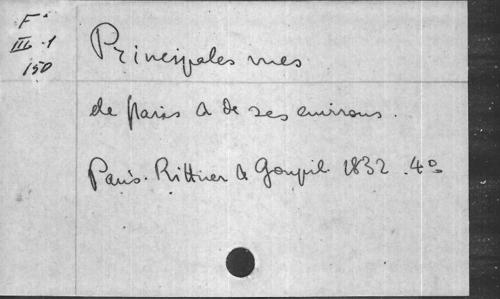 F°
III . 1
150
Principales vues
de Paris & de ses environs.
Paris. Rittner & Goupil 1832 . 4°